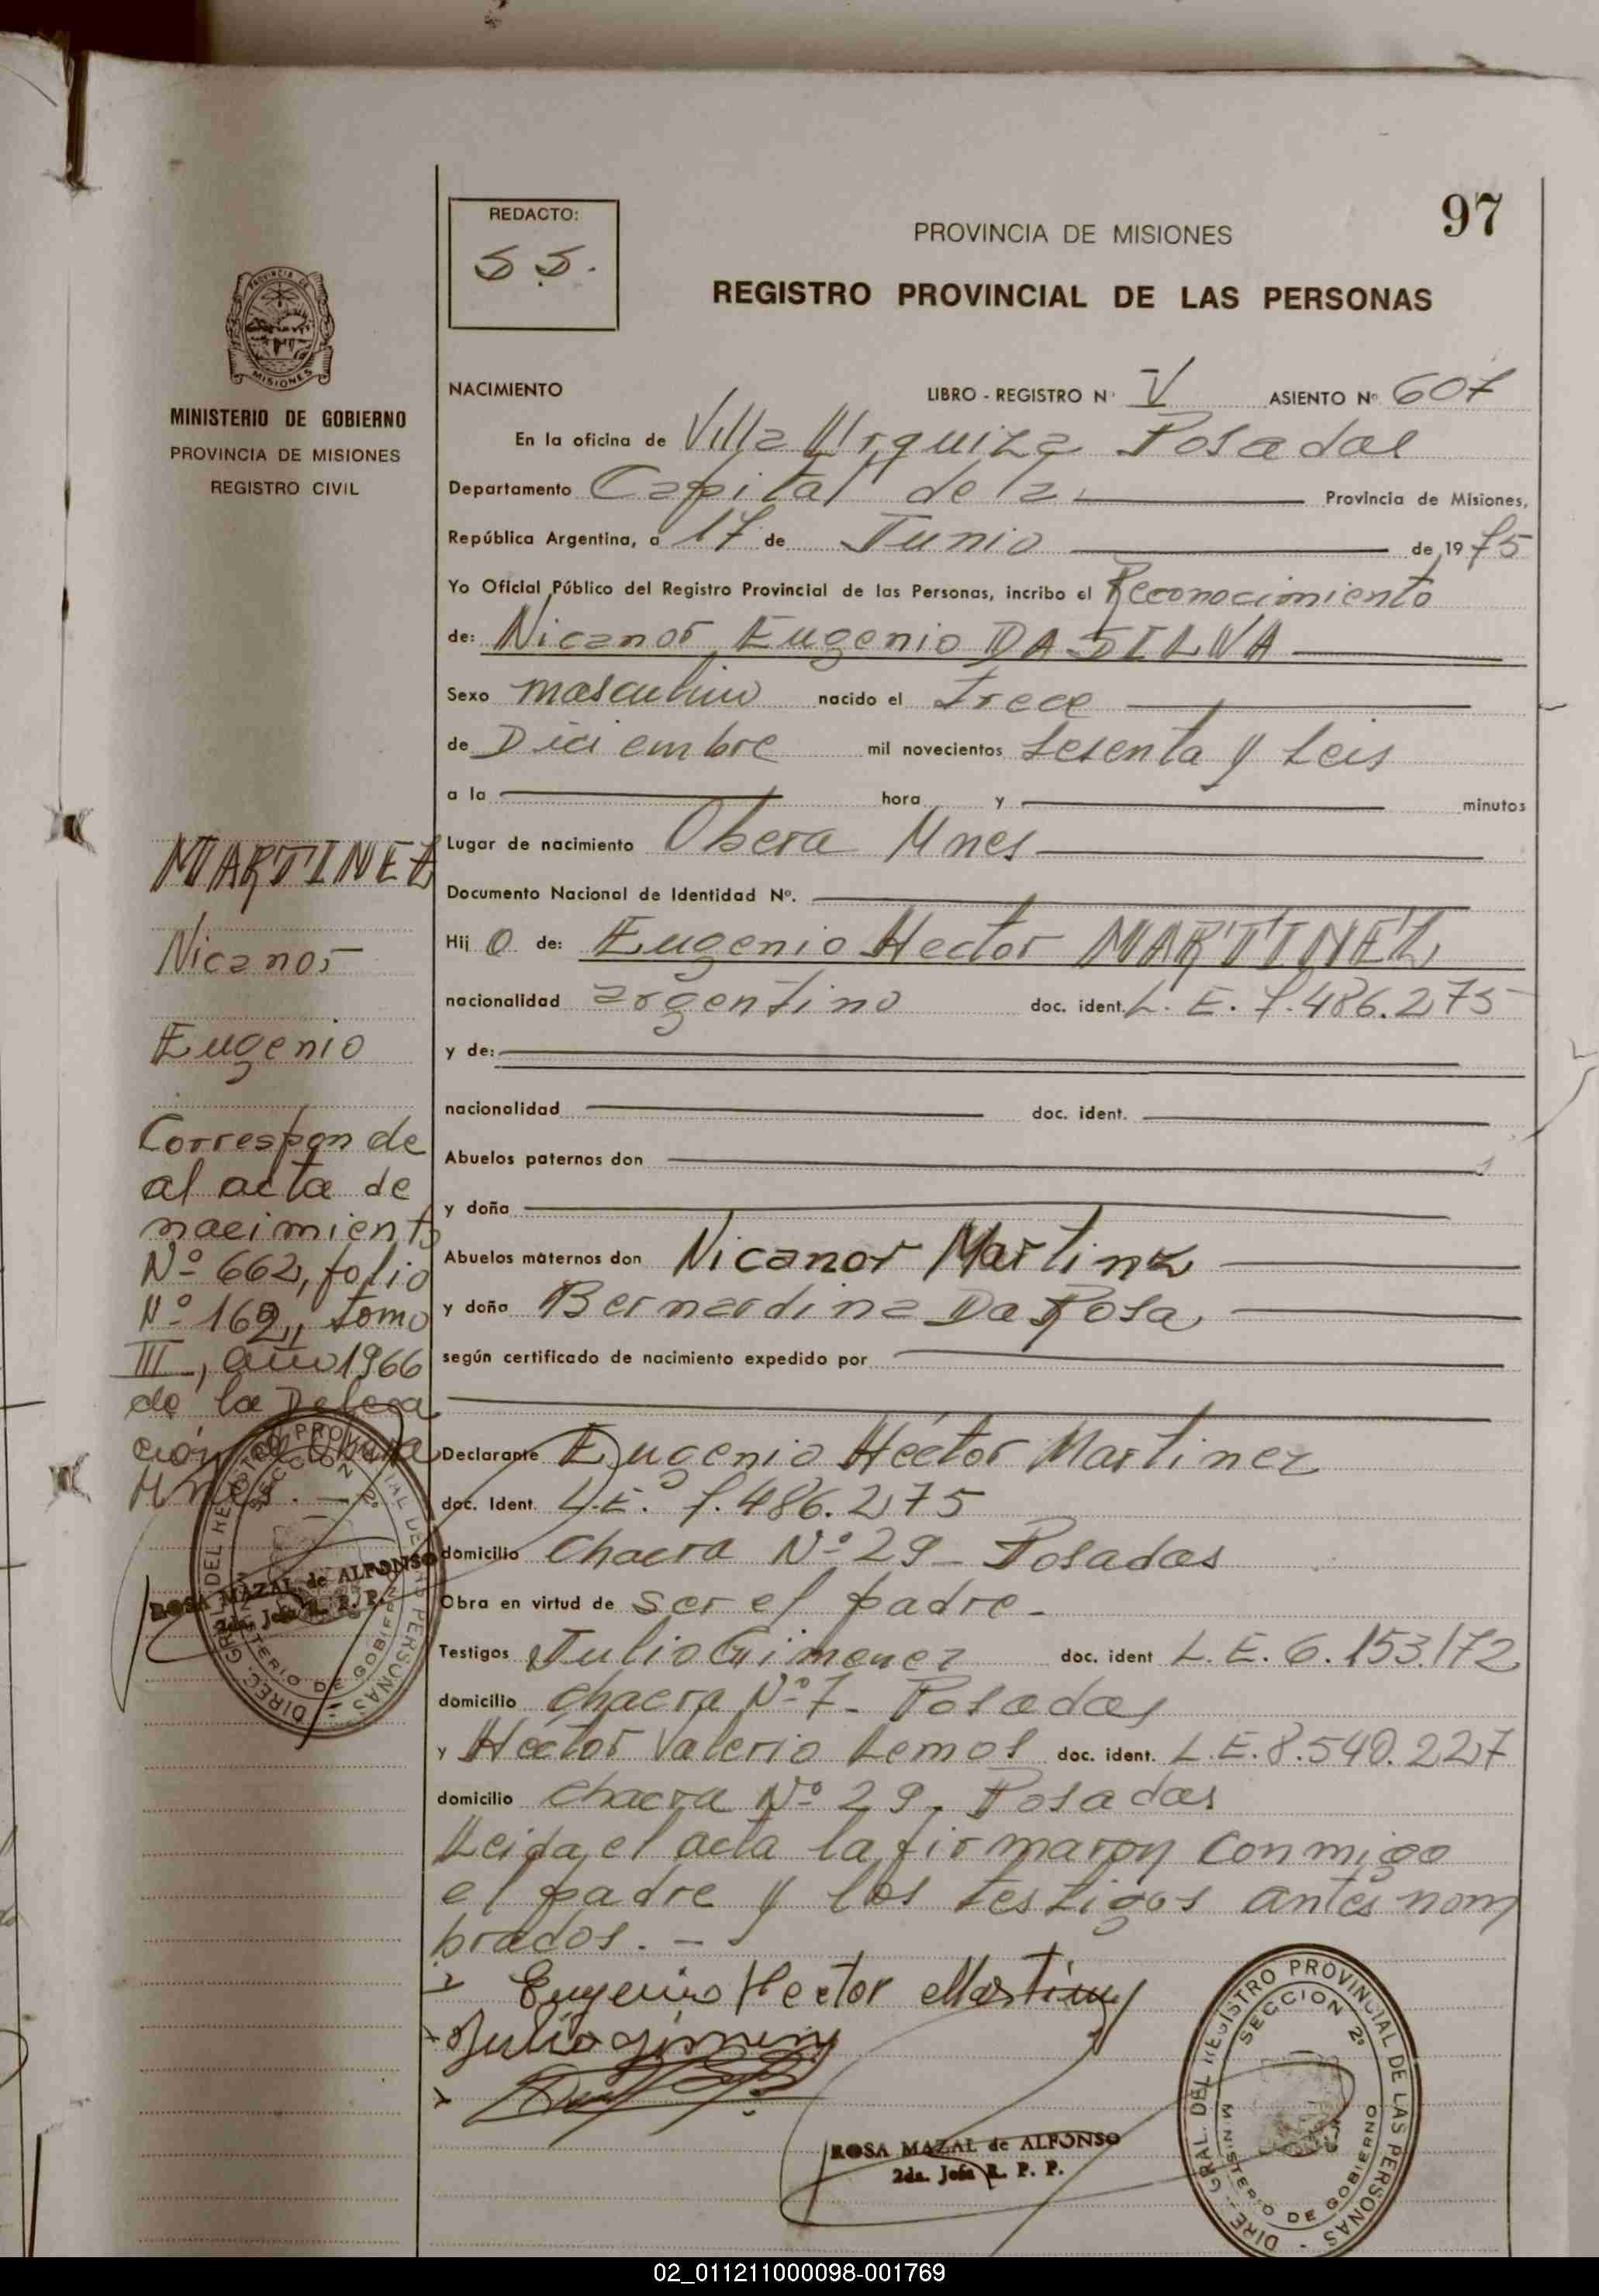 97
REDACTO:
S S.
PROVINCIA DE MISIONES
REGISTRO PROVINCIAL DE LAS PERSONAS
MISIONES
MINISTERIO DE GOBIERNO
PROVINCIA DE MISIONES
REGISTRO CIVIL
NACIMIENTO LIBRO - REGISTRO Nº V ASIENTO Nº 607
En la oficina de Villa Urquiza Posadas
Departamento Capital de la Provincia de Misiones,
República Argentina, a 17 de Junio de 1975
Yo Oficial Público del Registro Provincial de las Personas, incribo el Reconocimiento
de: Nicanor Eugenio DA SILVA
Sexo masculino nacido el trece
de Diciembre mil novecientos sesenta y seis
a la hora y minutos
Lugar de nacimiento Obera Mnes
Documento Nacional de Identidad Nº.
Hij o de: Eugenio Hector MARTINEZ
nacionalidad argentino doc. ident. L. E. 7.486.275
y de:
nacionalidad doc. ident.
Abuelos paternos don
y doña
Abuelos maternos don Nicanor Martinz
y doña Bernardina Da Rosa
según certificado de nacimiento expedido por
Declarante Eugenio Héctor Martinez
doc. Ident. L.E. 7.486.275
domicilio Chacra Nº 29 - Posadas
Obra en virtud de ser el padre.
Testigos Julio Gimenez doc. ident L. E. 6.153.172
domicilio Chacra Nº 7 - Posadas
y Héctor Valerio Lemos doc. ident. L.E. 8.540.227
domicilio Chacra Nº 29. Posadas
Leida el acta la firmaron conmigo
el padre y los testigos antes nom
brados. -
Eugenio Hector Martinez
Julio Gimenez
ROSA MAZAL de ALFONSO
2da. Jefa R. P. P.
DIREC. GRAL. DEL REGISTRO PROVINCIAL DE LAS PERSONAS
SECCION 2º
MINISTERIO DE GOBIERNO
MARTINEZ
Nicanor
Eugenio
Corresponde
al acta de
nacimiento
Nº 662, folio
Nº 162, tomo
III, año 1966
de la Delega
ción de Obera
Mnes. -
DIREC. GRAL. DEL REGISTRO PROVINCIAL DE LAS PERSONAS
SECCION 2º
MINISTERIO DE GOBIERNO
ROSA MAZAL de ALFONSO
2da. Jefa R. P. P.
02_011211000098-001769